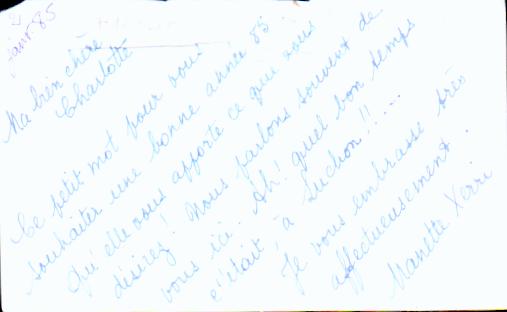 21
janv. 85
Ma bien chère
Charlotte
Ce petit mot pour vous
souhaiter une bonne année 85...
Qu'elle vous apporte ce que vous
désirez! Nous parlons souvent de
vous ici. Ah! quel bon temps
c'était à Luchon!!....
Je vous embrasse très
affectueusement.
Nanette Xerri